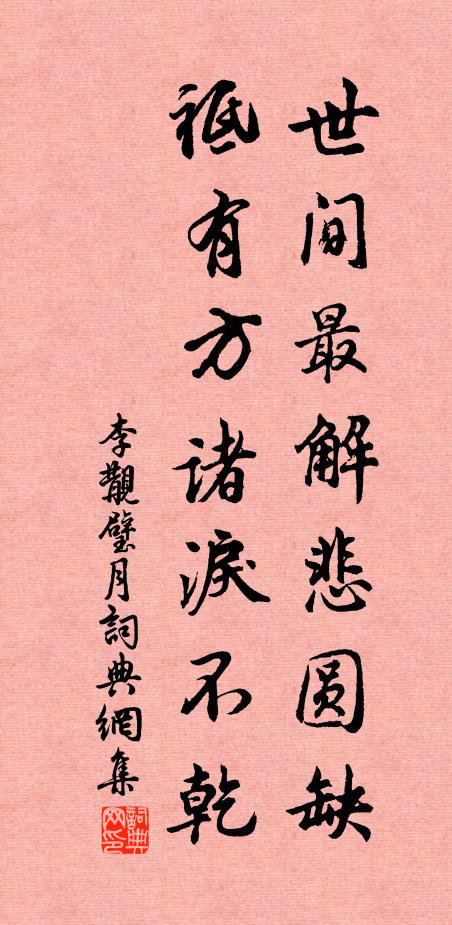 世间最解悲圆缺
祗有方诸淚不乾
李觏璧月詞典網集
詞典网印